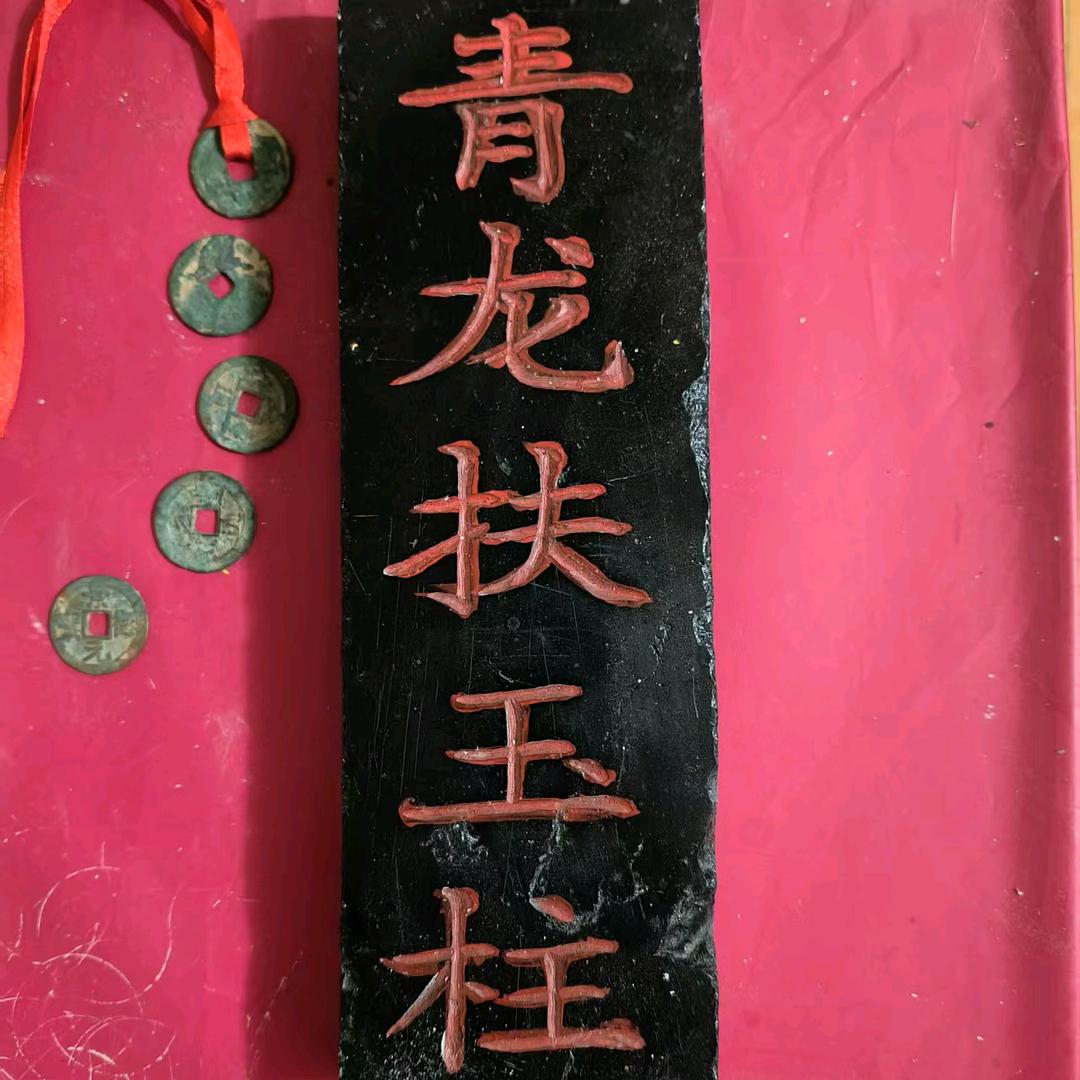 青龙扶玉柱